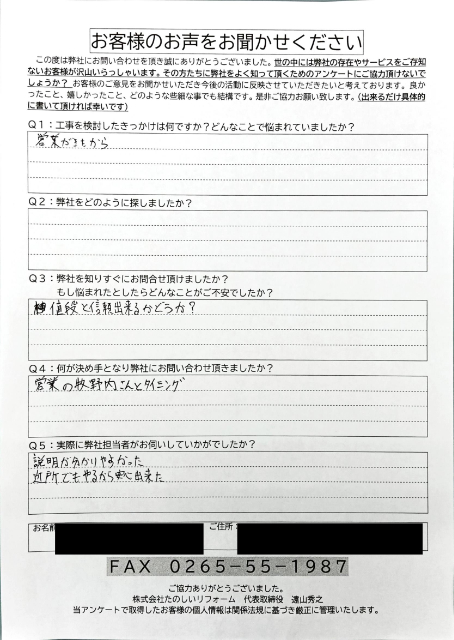 お客様のお声をお聞かせください
この度は弊社にお問い合わせを頂き誠にありがとうございました。世の中には弊社の存在やサービスをご存知
ないお客様が沢山いらっしゃいます。その方たちに弊社をよく知って頂くためのアンケートにご協力頂けないで
しょうか？お客様のご意見をお聞かせいただき今後の活動に反映させていただきたいと考えております。良か
ったこと、嬉しかったこと、どのような些細な事でも結構です。是非ご協力お願い致します。（出来るだけ具体的
に書いて頂ければ幸いです）
Q１：工事を検討したきっかけは何ですか？どんなことで悩まれていましたか？
営業がきてから
Q２：弊社をどのように探しましたか？
Q３：弊社を知りすぐにお問合せ頂けましたか？
もし悩まれたとしたらどんなことがご不安でしたか？
値段と信頼出来るかどうか？
Q４：何が決め手となり弊社にお問い合わせ頂きましたか？
営業の牧野内さんとタイミング
Q５：実際に弊社担当者がお伺いしていかがでしたか？
説明が分かりやすかった
近所でもやるから 出来た
お名前
ご住所：
FAX 0265-55-1987
ご協力ありがとうございました。
株式会社たのしいリフォーム 代表取締役 遠山秀之
当アンケートで取得したお客様の個人情報は関係法規に基づき厳正に管理いたします。